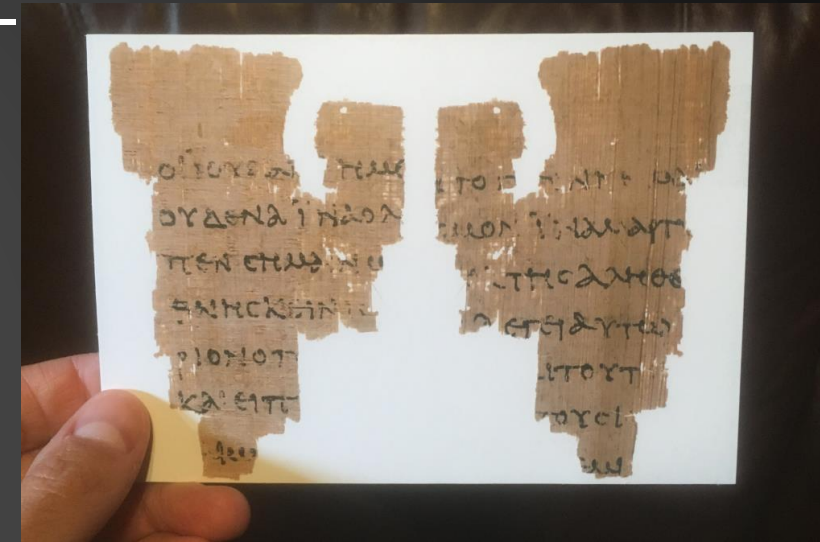 ΟΙ ΙΟΥΔΑΙ ΗΜΕ
ΟΥΔΕΝΑ ΪΝΑ Ο Λ
ΠΕΝ ϹΗΜΑΙΝΩ
ΘΝΗϹΚΕΙΝ
ΡΙΟΝ Ο Π
ΚΑΙ ΕΙΠ
ΤΟ
ϹΜΟΝ ΪΝΑ ΜΑΡΤΥ
ΤΗϹ ΑΛΗΘΕ
ΛΕΓΕΙ ΑΥΤΩ
ΑΙ ΤΟΥΤ
ΤΟΥϹ Ι